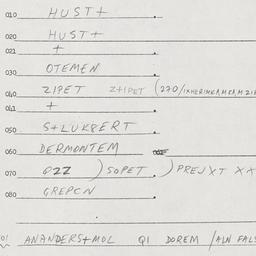 010 HUST+
020 HUST+
021 +
030 OTEMEN
040 ZIPET Z+IPET (270/
041 +
050 S+LUKPERT
060 DERMONTEM
070 OZZ ) SOPET ) PREJXT XX
080 GREPCN
ANANDERS+MOL QI DOREM /ALN FALS